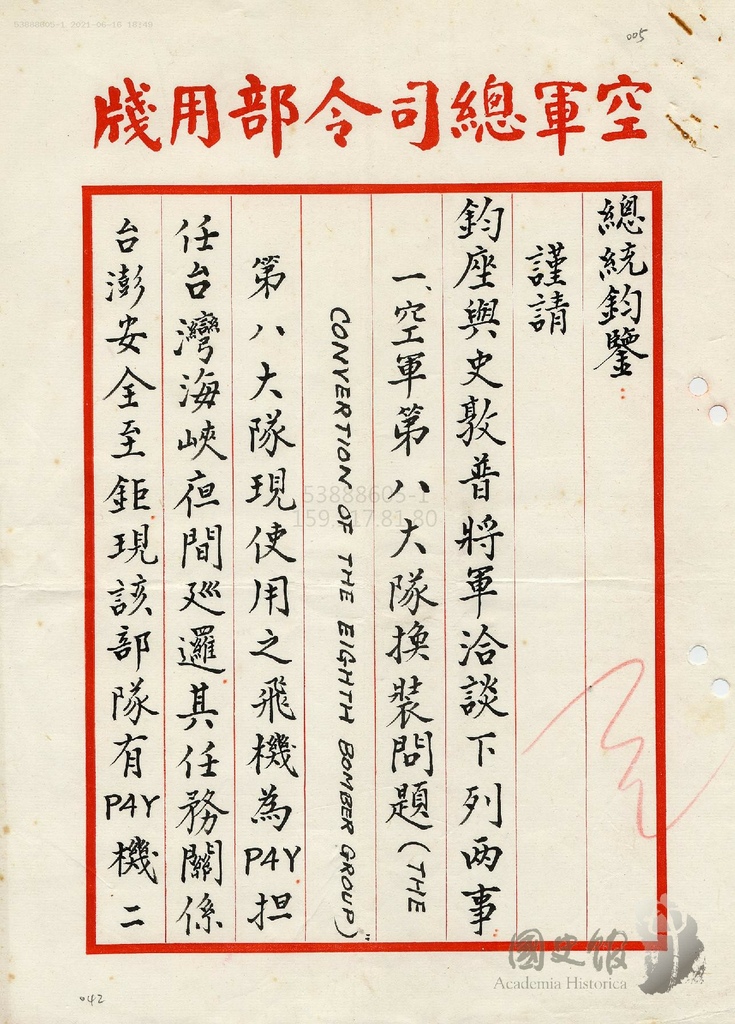 53888605-1 2021-06-16 18:49
005
空軍總司令部用牋
總統鈞鑒：
謹請
鈞座與史敦普將軍洽談下列兩事
一、空軍第八大隊換裝問題(THE
CONVERTION OF THE EIGHTH BOMBER GROUP)"
第八大隊現使用之飛機為P4Y担
任台灣海峽夜間廵邏其任務關係
台澎安全至鉅現該部隊有P4Y機二
53888605-1
159.117.81.80
國史館
Academia Historica
042